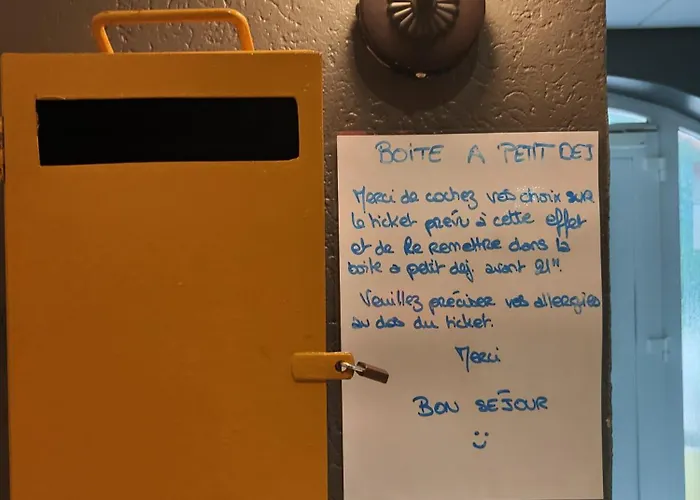 BOITE A PETIT DEJ
Merci de cochez vos choix sur
le ticket prévu à cette effet
et de le remettre dans la
boite a petit dej. avant 21H.
Veuillez préciser vos allergies
au dos du ticket.
Merci
BON SÉJOUR